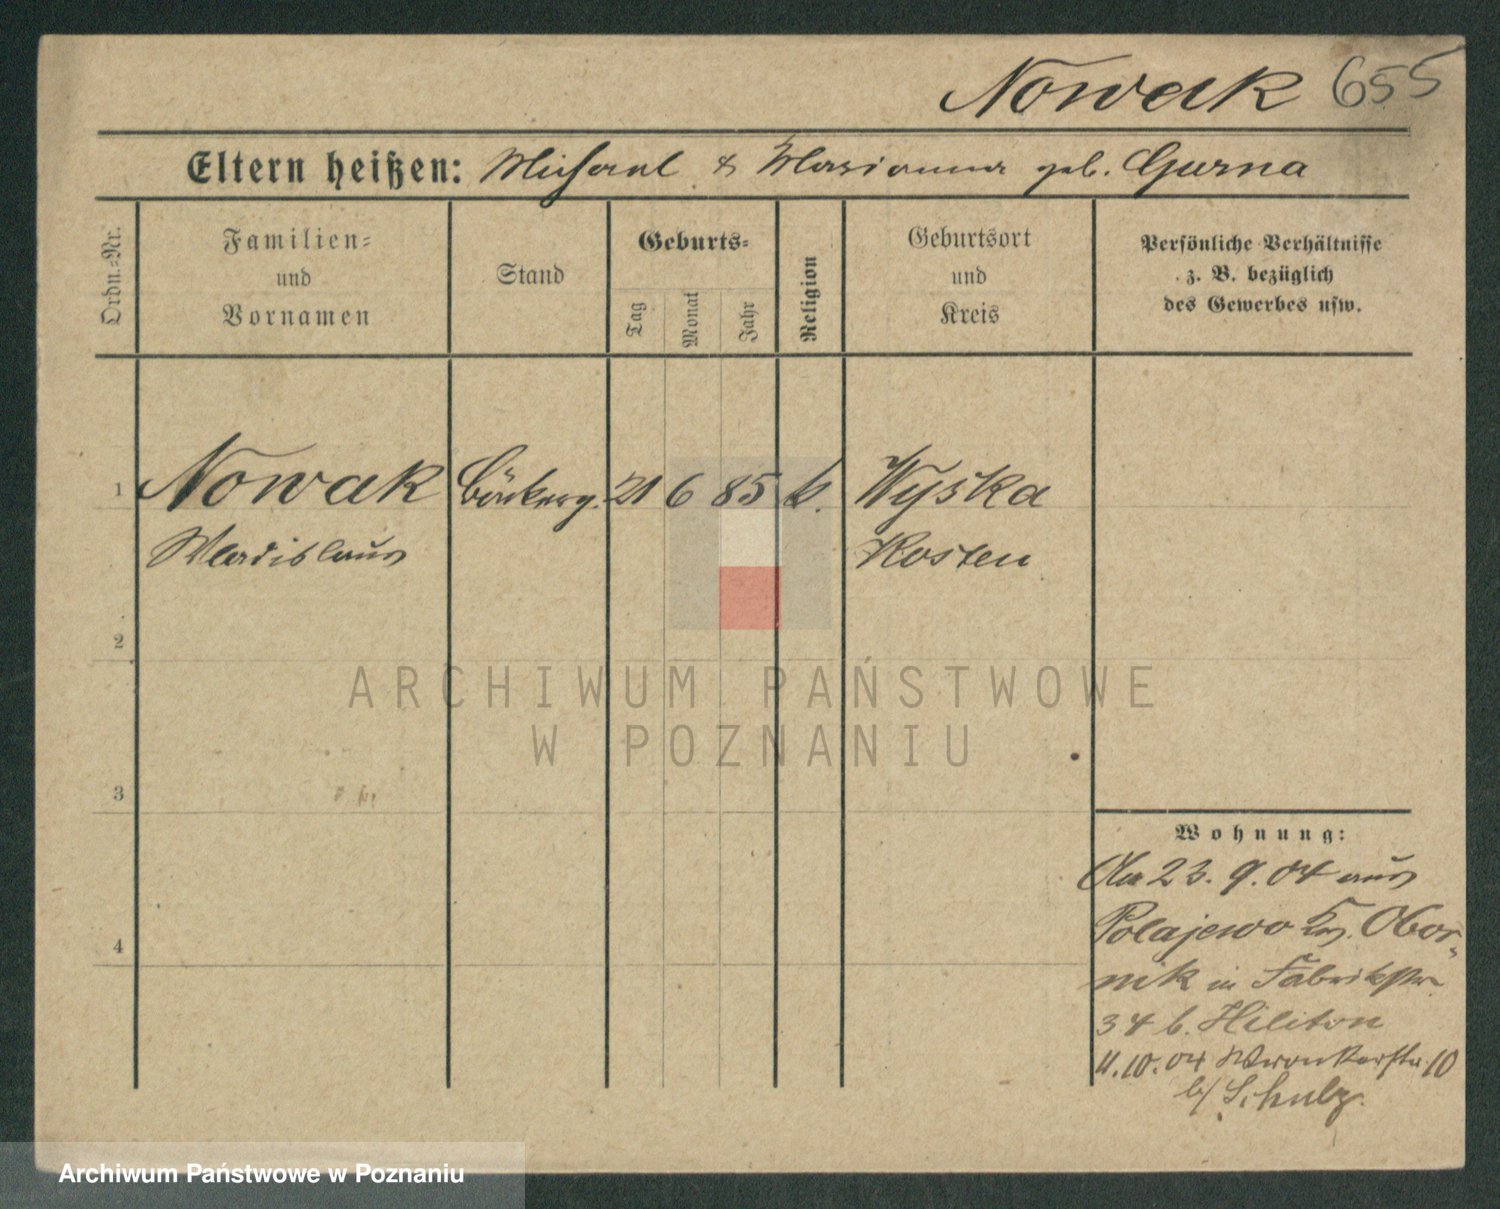 Nowak 655
Eltern heißen: Michael & Marianna geb. Gurna
Ordn.-Nr.
Familien-
und
Vornamen
Stand
Geburts-
Tag
Monat
Jahr
Religion
Geburtsort
und
Kreis
Persönliche Verhältnisse
z. B. bezüglich
des Gewerbes usw.
1 Nowak Bäckerg. 21 6 85 k. Wyska
Wladislaus Kosten
2
ARCHIWUM PAŃSTWOWE
W POZNANIU
3
Wohnung:
Am 23. 9. 04 aus
Polajewo Krs. Obor-
4
nik in Fabrikstr.
34 b. Hiliton
11.10.04 Wronkerstr. 10
b/ Schulz.
Archiwum Państwowe w Poznaniu